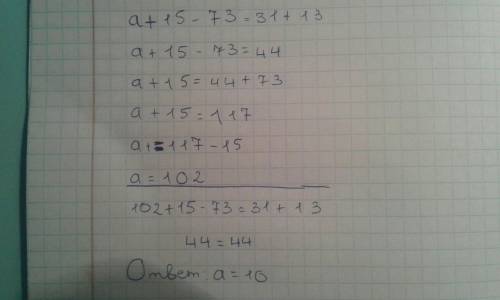 a + 15 - 73 = 31 + 13
a + 15 - 73 = 44
a + 15 = 44 + 73
a + 15 = 117
a = 117 - 15
a = 102
102 + 15 - 73 = 31 + 13
44 = 44
Ответ: a = 10